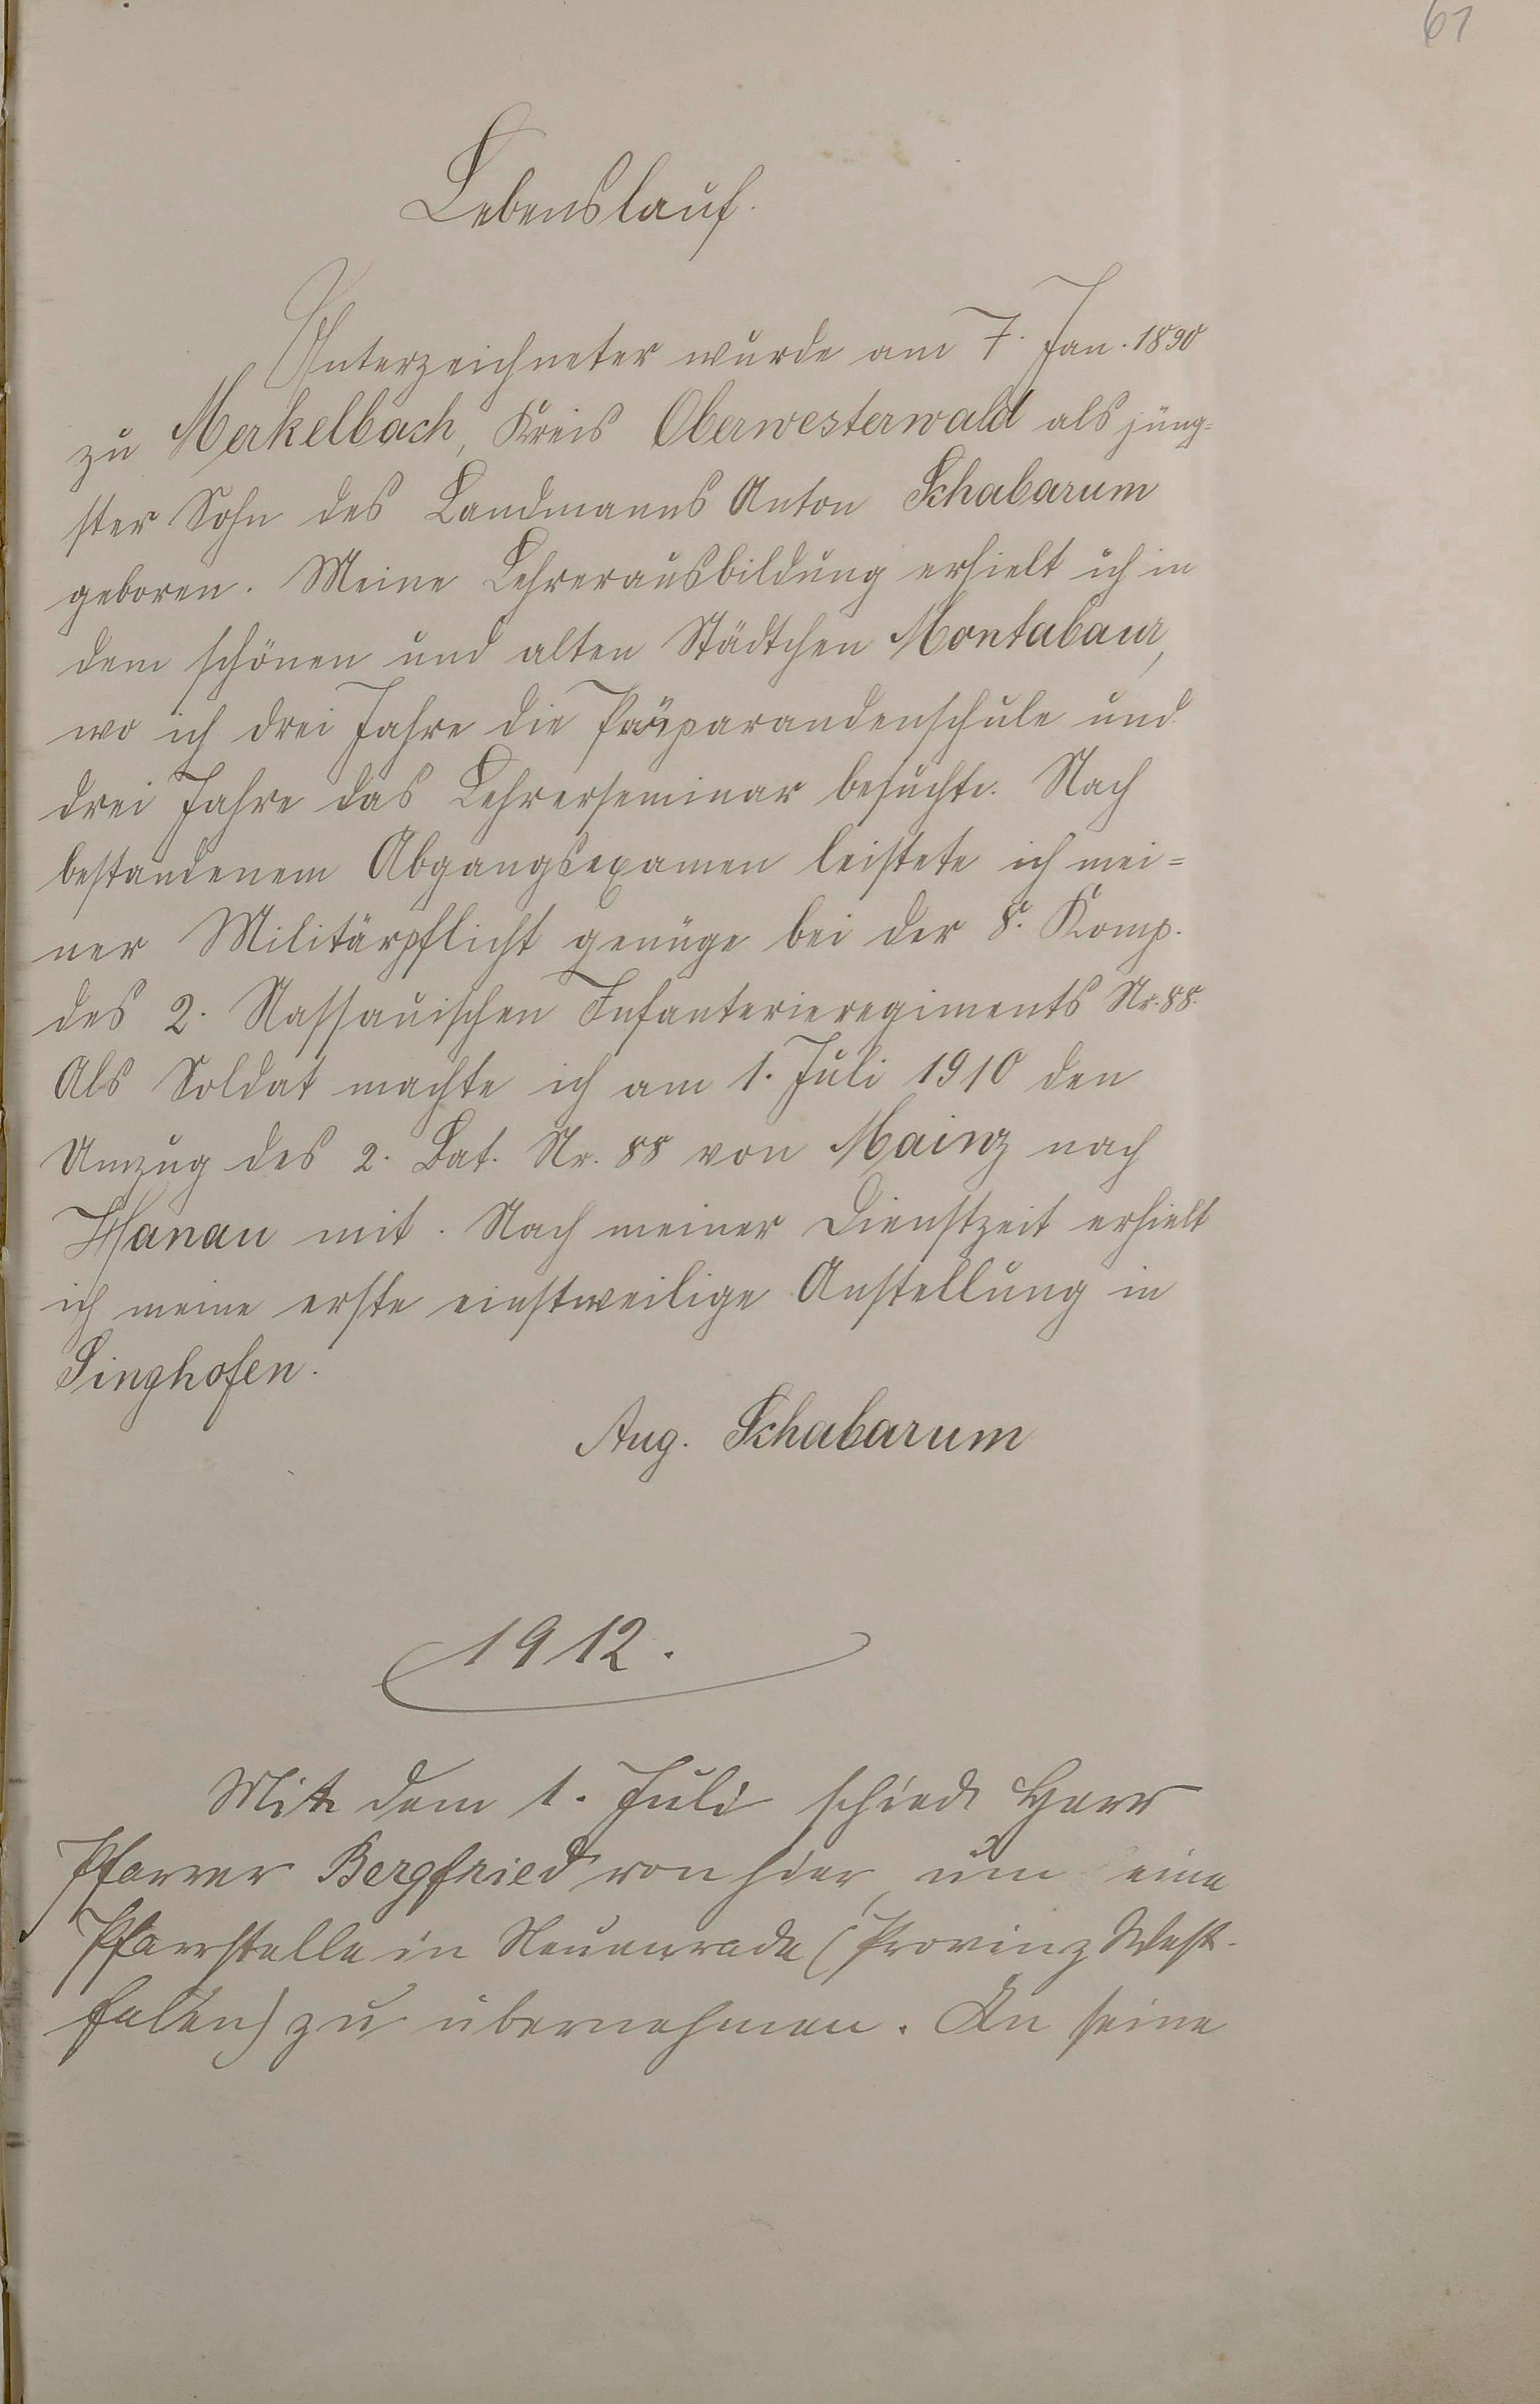 61
Lebenslauf.
Unterzeichneter wurde am 7. Jan. 1890
zu Merkelbach, Kreis Oberwesterwald als jüng-
ster Sohn des Landmanns Anton Schabarum
geboren. Meine Lehrerausbildung erhielt ich in
dem schönen und alten Städtchen Montabaur,
wo ich drei Jahre die Präparandenschule und
drei Jahre das Lehrerseminar besuchte. Nach
bestandenem Abgangsexamen leistete ich mei-
ner Militärpflicht genüge bei der 8. Komp.
des 2. Nassauischen Infanterieregiments Nr. 88.
Als Soldat machte ich am 1. Juli 1910 den
Umzug des 2. Bat. Nr. 88 von Mainz nach
Hanau mit. Nach meiner Dienstzeit erhielt
ich meine erste einstweilige Anstellung in
Singhofen.
Aug. Schabarum
1912.
Mit dem 1. Juli schied Herr
Pfarrer Bergfried von hier, um eine
Pfarrstelle in Neuenrade (Provinz West-
falen) zu übernehmen. An seine